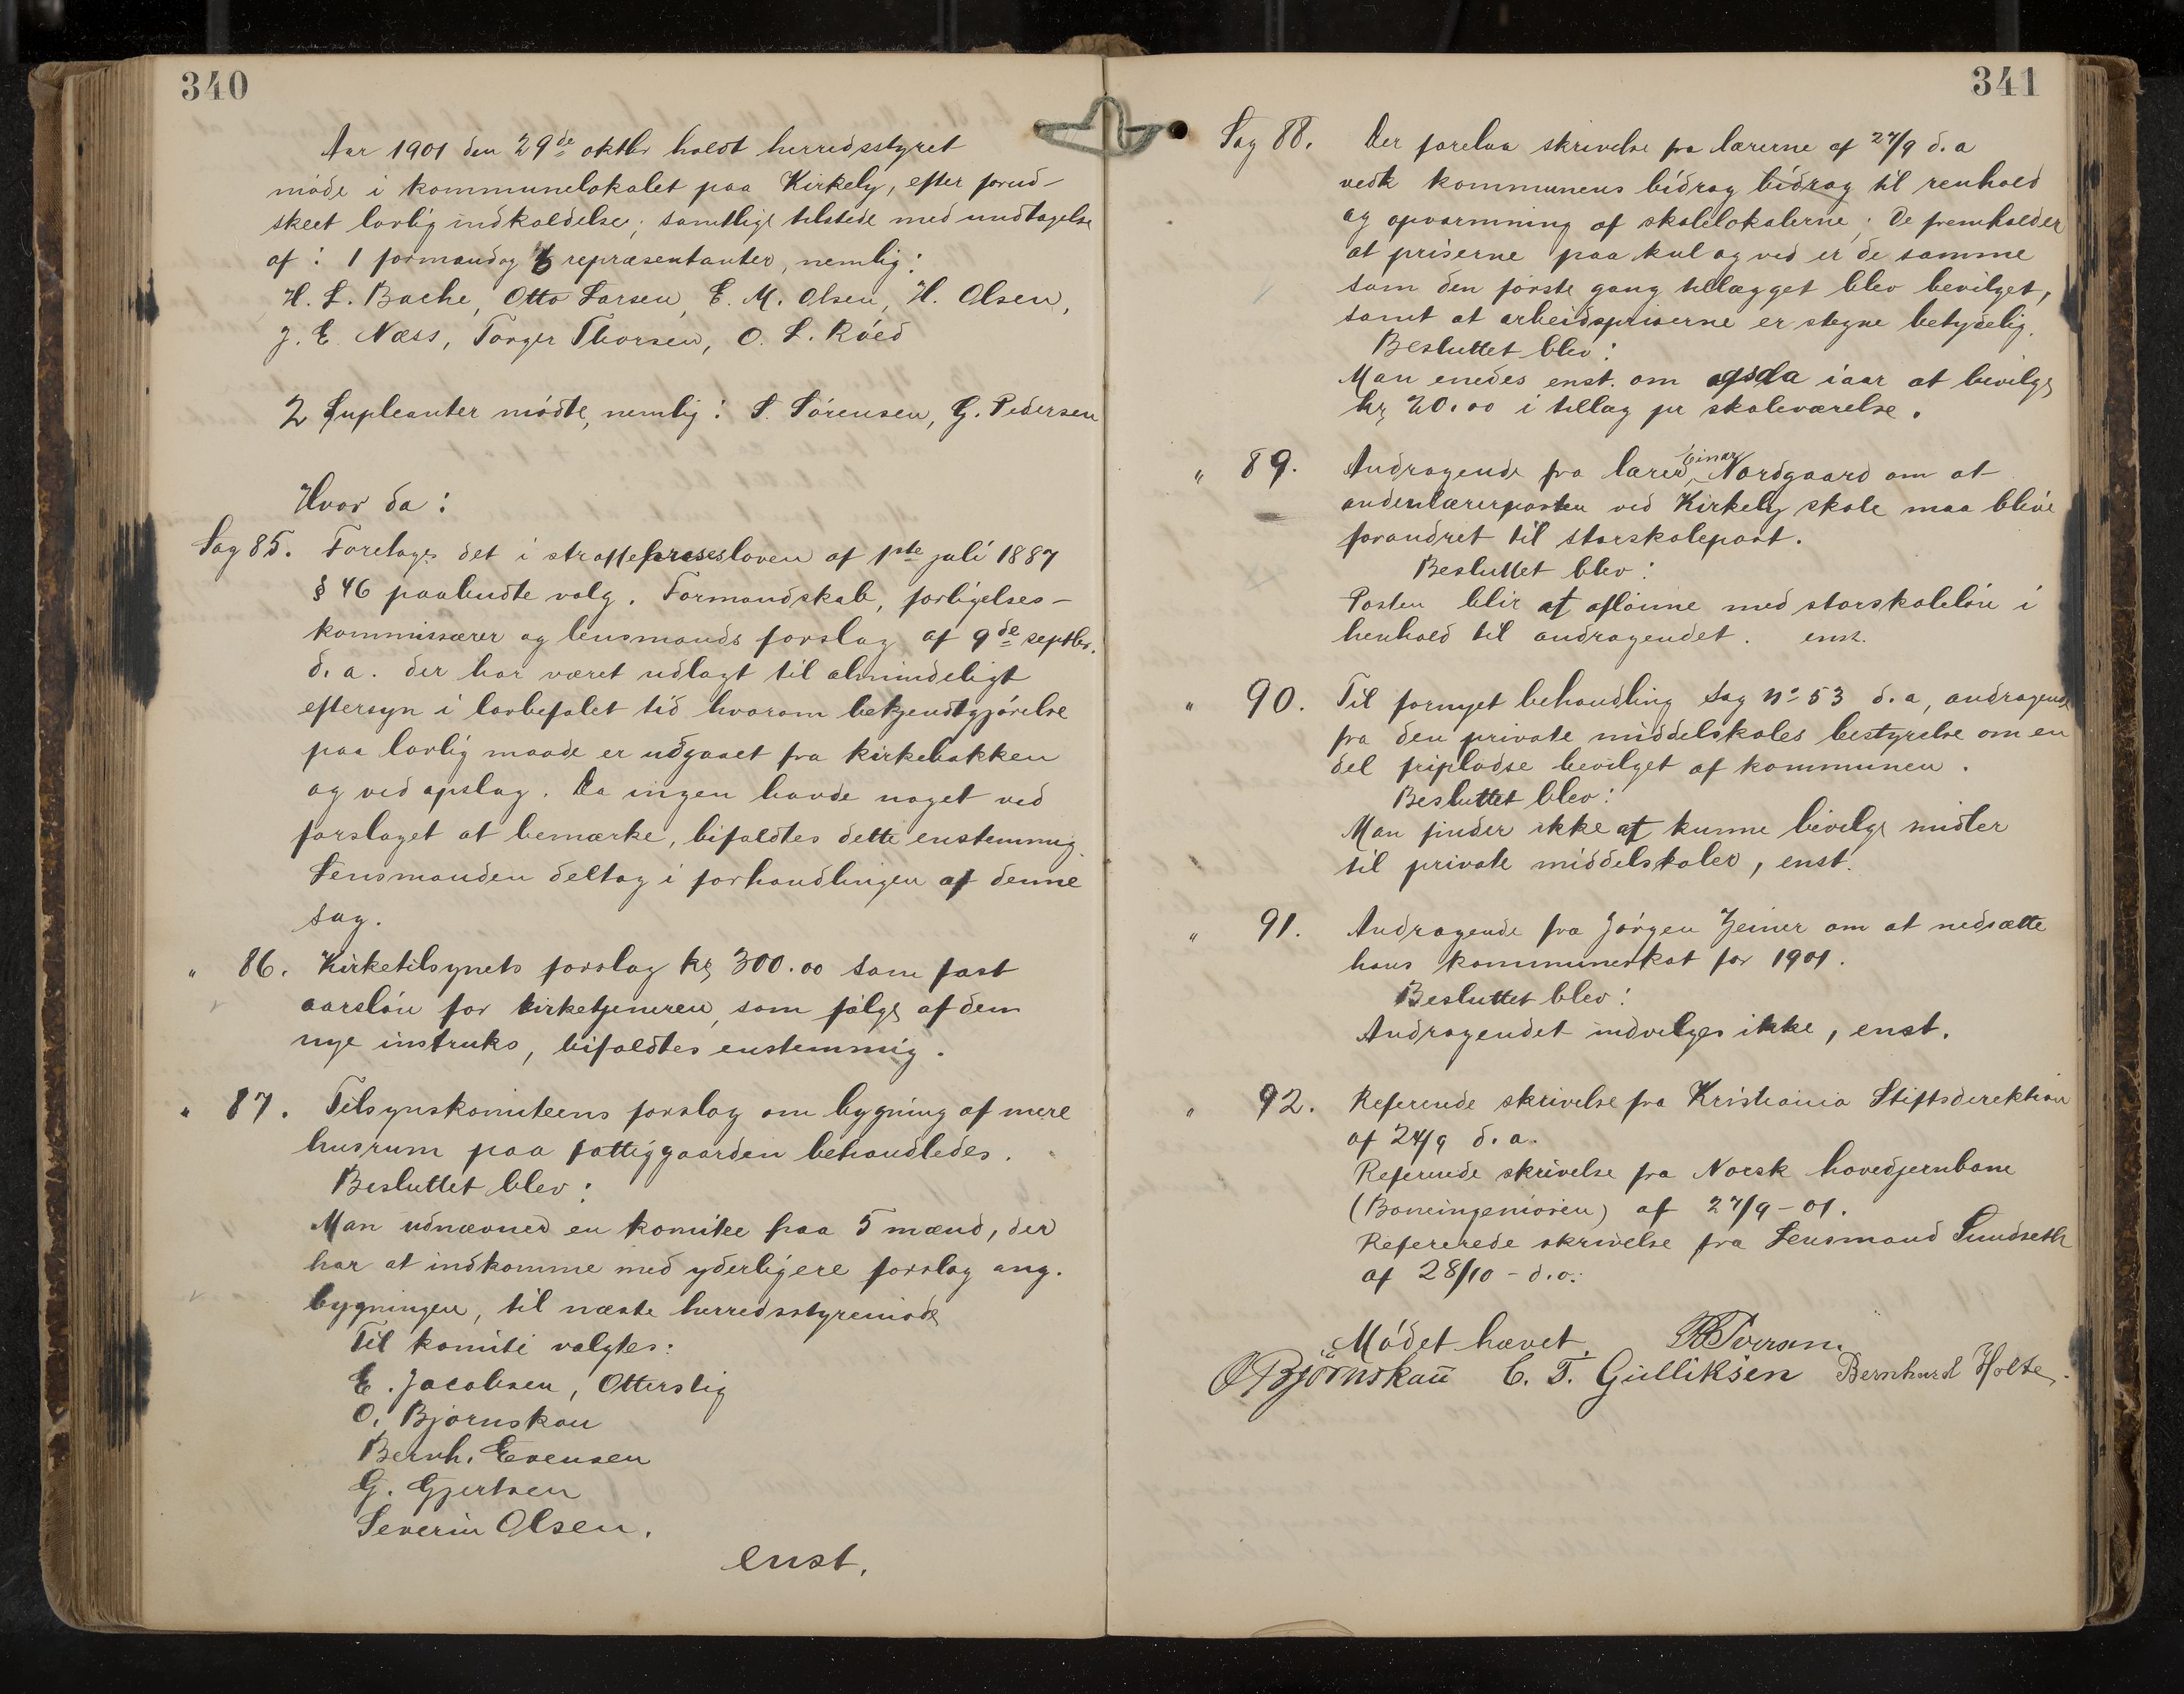 340
Aar 1901 den 29de oktbr holdt herredsstyret
møde i kommunelokalet paa Kirkely, efter forud-
skeet lovlig indkaldelse; samtlige tilstede med undtagelse
af: 1 formand og 6 repræsentanter, nemlig:
H. L. Bache, Otto Larsen, E. M. Olsen, H. Olsen,
J. E. Næss, Torger Thorsen, O. L. Röed
2 Supleanter mödte, nemlig: S. Sörensen, G. Pedersen
Hvor da:
Sag 85. Foretoges det i straffeprosesloven af 1ste juli 1887
§ 46 paabudte valg. Formandskab, forligelses-
kommissærer og lensmands forslag af 9de septbr.
d. a. der har været udlagt til almindeligt
eftersyn i lovbefalet tid hvorom bekjendtgjörelse
paa lovlig maade er udgaaet fra kirkebakken
og ved opslag. Da ingen havde noget ved
forslaget at bemærke, bifaldtes dette enstemmig.
Lensmanden deltog i forhandlingen af denne
sag.
" 86. Kirketilsynets forslag kr 300.00 som fast
aarslön for kirketjeneren, som følge af den
nye instruks, bifaldtes enstemmig.
" 87. Tilsynskomiteens forslag om bygning af mere
husrum paa fattiggaarden behandledes.
Besluttet blev:
Man udnævner en komitee paa 5 mænd, der
har at indkomme med yderligere forslag ang.
bygningen, til næste herredsstyremöde
Til komite valgtes:
E. Jacobsen, Otterstig
O. Bjørnskau
Bernh. Evensen
G. Gjertsen
Severin Olsen.
enst.
341
Sag 88. Der forelaa skrivelse fra lærerne af 27/9 d. a
vedk kommunens bidrag bidrag til renhold
og opvarmning af skolelokalerne; De fremholder
at priserne paa kul og ved er de samme
som den første gang tillægget blev bevilget,
samt at arbeidspriserne er stegne betydelig.
Besluttet blev:
Man enedes enst. om ogsaa iaar at bevilge
kr 20.00 i tillæg pr skoleværelse.
" 89. Andragende fra lærer Einar Nordgaard om at
andenlærerposten ved Kirkely skole maa blive
forandret til storskolepost.
Besluttet blev:
Posten blir at aflønne med storskolelön i
henhold til andragendet. enst.
" 90. Til fornyet behandling Sag No 53 d. a, andragende
fra den private middelskoles bestyrelse om en
del fripladse bevilget af kommunen.
Besluttet blev:
Man finder ikke at kunne bevilge midler
til private middelskoler, enst.
" 91. Andragende fra Jörgen Zeiner om at nedsætte
hans kommuneskat for 1901.
Besluttet blev:
Andragendet indvilges ikke, enst.
" 92. Refererede skrivelse fra Kristiania Stiftsdirektion
af 24/9 d. a.
Refererede skrivelse fra Norsk hovedjernbane
(Baneingeniören) af 27/9-01.
Refererede skrivelse fra Lensmand Sundseth
af 28/10 - d. a.
Mödet hævet.
O Björnskau C. T. Gulliksen Bernhard Holte.